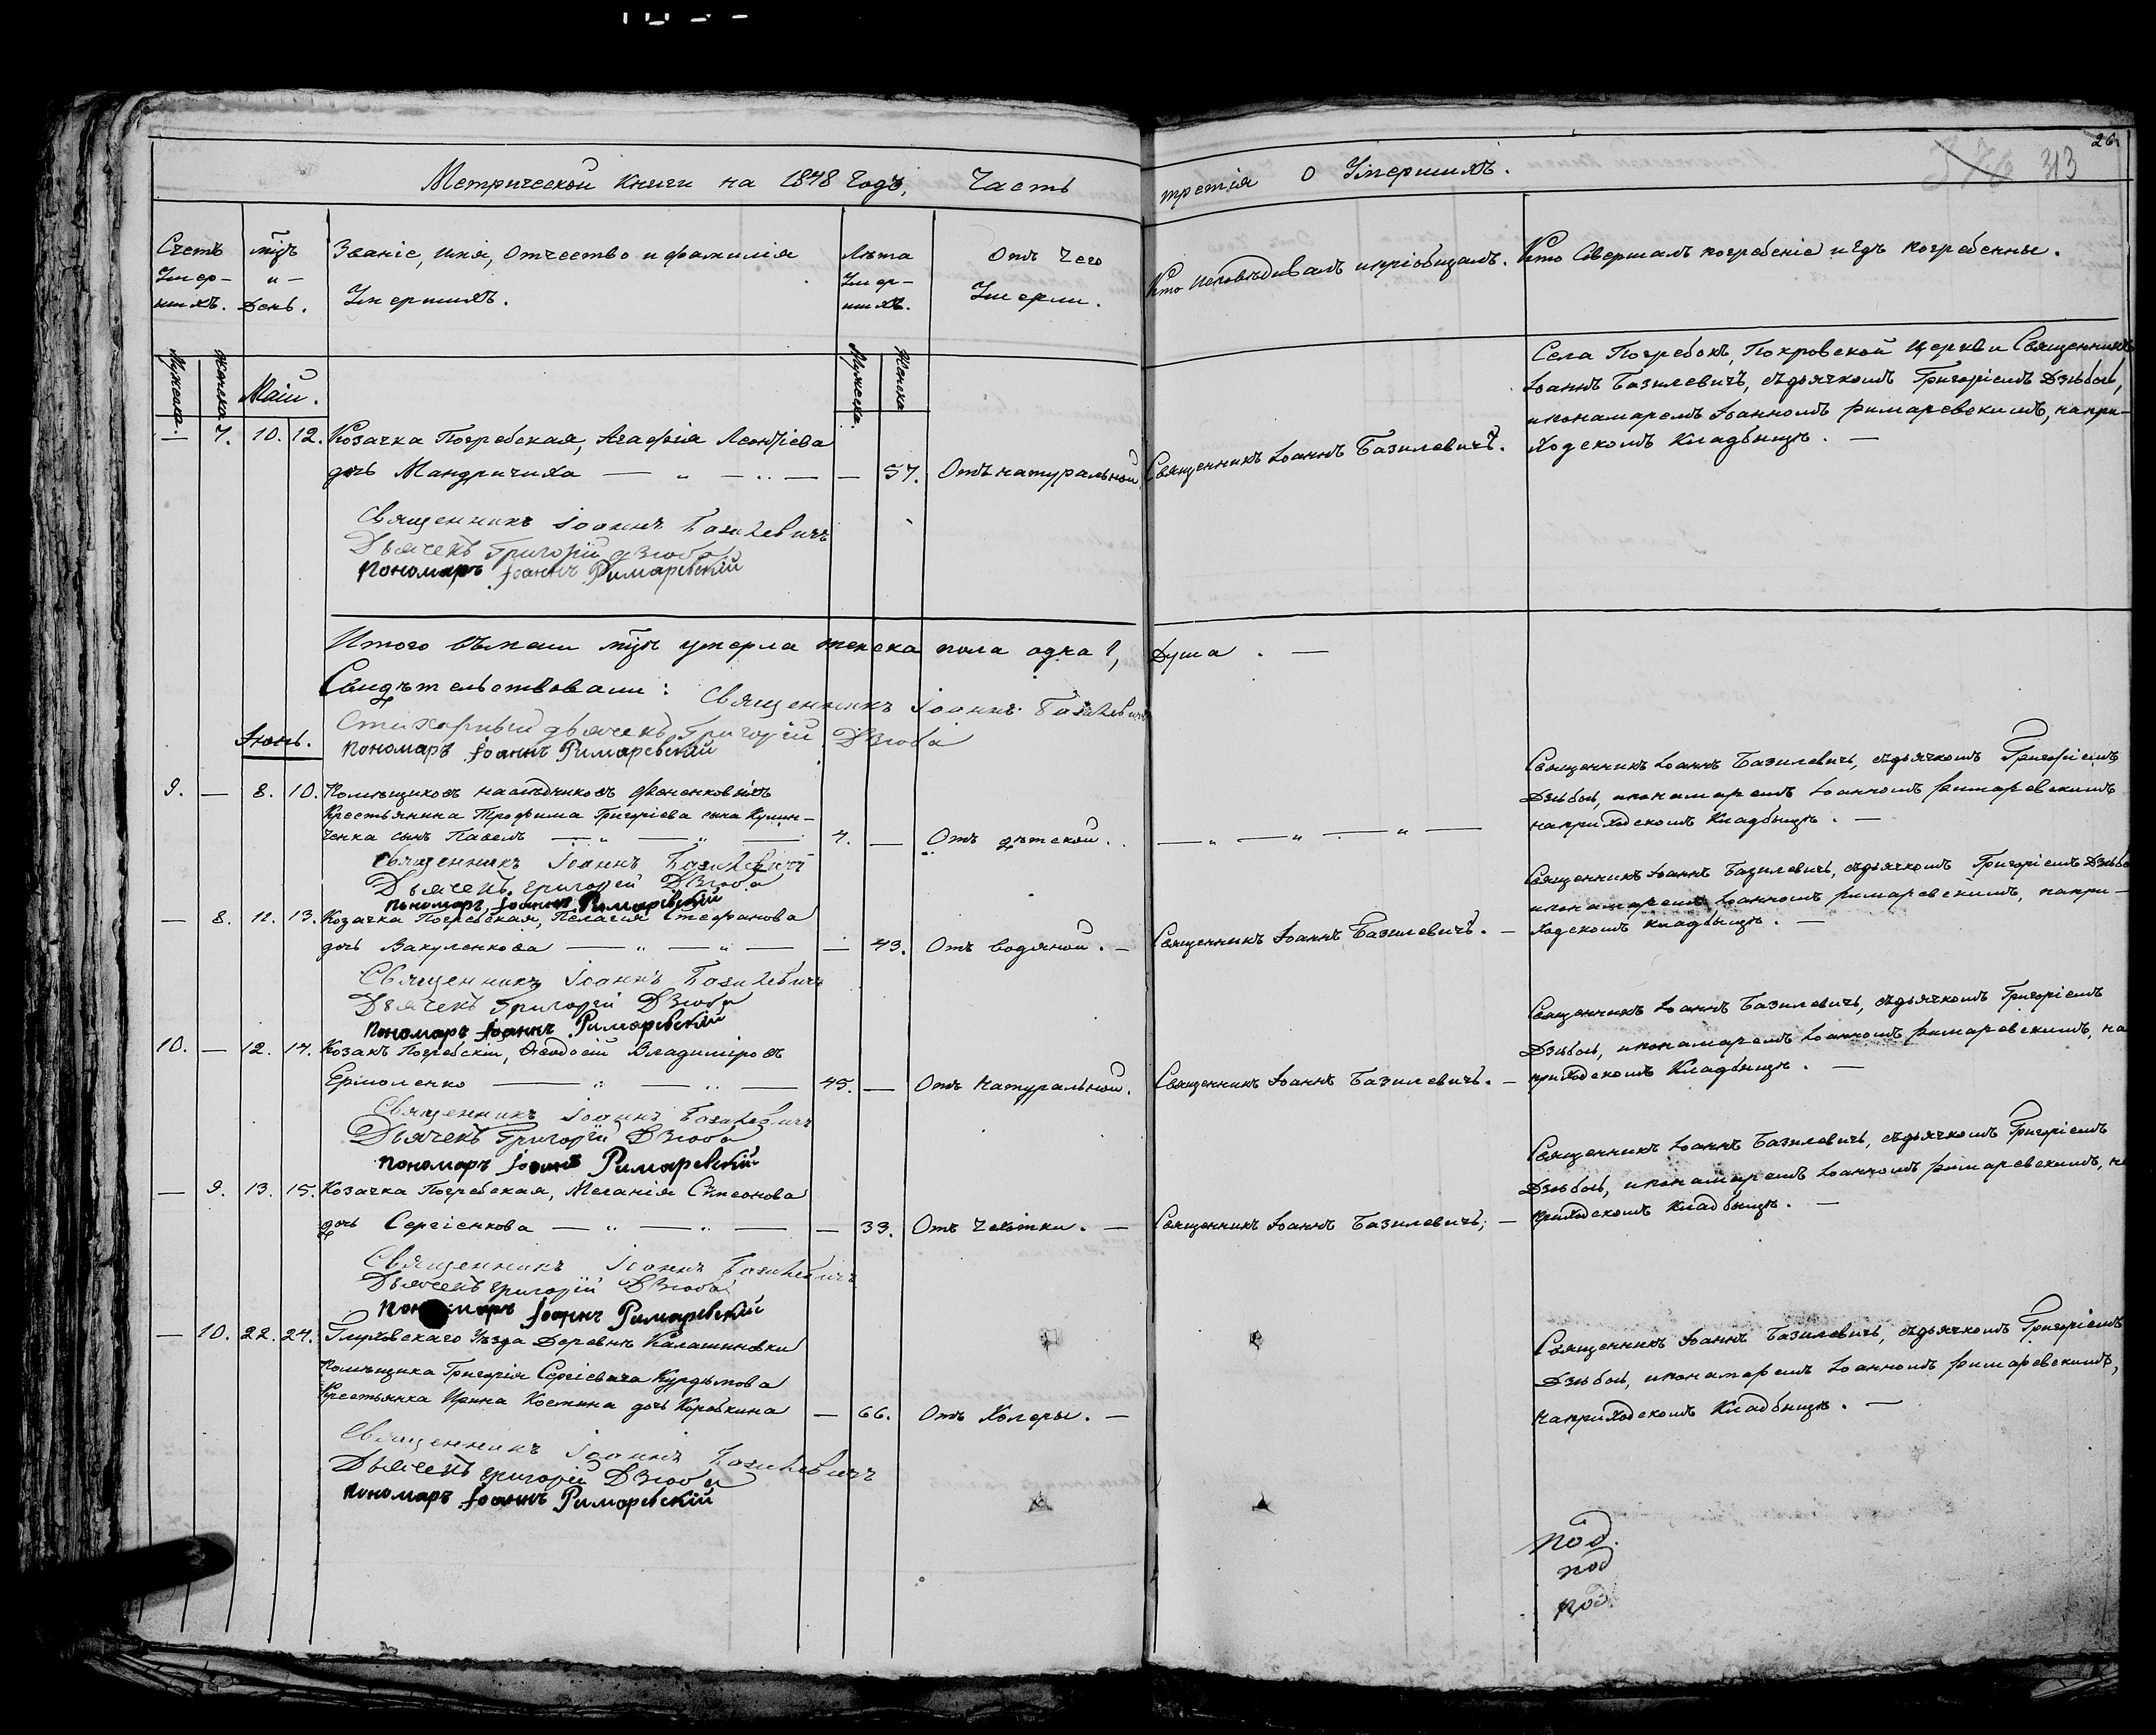 26
313
Метрической Книги на 1848 Годъ, Часть третія О Умершихъ.
Счетъ Умер-шихъ.
мцъ и День.
Званіе, имя, Отчество и фамилія Умершихъ.
Лѣта Умер-шихъ.
Отъ Чего Умерли.
Кто исповѣдивалъ и пріобщалъ.
Кто Совершалъ погребеніе и гдѣ погребенны.
Мужеска.
Женска.
Маій.
Мужеска.
Женска
Села Погребокъ, Покровской Церкви Священникъ
Іоаннъ Базилевичъ, съдьячкомъ Григоріемъ Дзюбою,
ипонамаремъ Іоанномъ Римаревскимъ, напри-
— 7. 10. 12. Козачка Погребская, Агафія Леонтіева
ходскомъ Кладбищѣ. —
дочь Мандричиха — „ — „ — — 57. Отъ натуральной. Священникъ Іоаннъ Базилевичъ.
Священникъ Іоаннъ Базилевичъ
Дьячекъ Григорій Дзюба
Пономаръ Іоаннъ Римаревскій
Итого въмаи мцѣ умерла женска пола одна 1, Душа. —
Свидѣтельствовали: Священникъ Іоаннъ Базилевичъ
Стихарный дьячекъ Григорій Дзюба
Пономаръ Іоаннъ Римаревскій
Іюнь.
Священникъ Іоаннъ Базилевичь, съдьячкомъ Григоріемъ
9. — 8. 10. Помѣщиковъ наслѣдчиковъ
Дзюбою, ипонамаремъ Іоанномъ Римаревскимъ
Крестьянина Трофима Григоріева сына
ченка сынъ Павелъ — „ — „ — 4. — Отъ дѣтской. — „ — „ —
наприходскомъ Кладбищѣ. —
Священникъ Іоаннъ Базилевичъ
Дьячекъ Григорій Дзюба
Пономаръ Іоаннъ Римаревскій
Священникъ Іоаннъ Базилевичь, съдьячкомъ Григоріемъ Дзюбо
ипонамаремъ Іоанномъ Римаревскимъ, напри-
— 8. 11. 13. Козачка Погребская, Пелагія Стефанова
ходскомъ Кладбищѣ. —
дочь Вакуленкова — „ — „ — — 43. Отъ водяной. — Священникъ Іоаннъ Базилевичъ. —
Священникъ Іоаннъ Базилевичъ
Дьячекъ Григорій Дзюба
Пономаръ Іоаннъ Римаревскій
Священникъ Іоаннъ Базилевичь, съдьячкомъ Григоріемъ
10. — 12. 14. Козакъ Погребскій, Ѳеодосій Владиміровъ
Дзюбою, ипонамаремъ Іоанномъ Римаревскимъ, на
Ермоленко — „ — „ — 45. — Отъ Натуральной. Священникъ Іоаннъ Базилевичь. —
приходскомъ Кладбищѣ. —
Священникъ Іоаннъ Базилевичъ
Дьячекъ Григорій Дзюба
Пономаръ Іоаннъ Римаревскій
Священникъ Іоаннъ Базилевичь, съдьячкомъ Григоріемъ
— 9. 13. 15. Козачка Погребская, Меланія Сѵмеонова
Дзюбою, ипонамаремъ Іоанномъ Римаревскимъ, на
дочь Сергіенкова — „ — „ — — 33. Отъ Чахотки. — Священникъ Іоаннъ Базилевичь; —
приходскомъ Кладбищѣ. —
Священникъ Іоаннъ Базилевичъ
Дьячекъ Григорій Дзюба
Пономаръ Іоаннъ Римаревскій
— 10. 22. 24. Глуховскаго Уѣзда Деревнѣ Калашиновки
Священникъ Іоаннъ Базилевичь, съдьячкомъ Григоріемъ
Помѣщика Григорія Сергіевича Курдюмова
Дзюбою, ипонамаремъ Іоанномъ Римаревскимъ,
Крестьянка Ирина Костина дочь Коровкина — 66. Отъ Холеры. —
наприходскомъ Кладбищѣ. —
Священникъ Іоаннъ Базилевичъ
Дьячекъ Григорій Дзюба
Пономаръ Іоаннъ Римаревскій
под.
под
под.